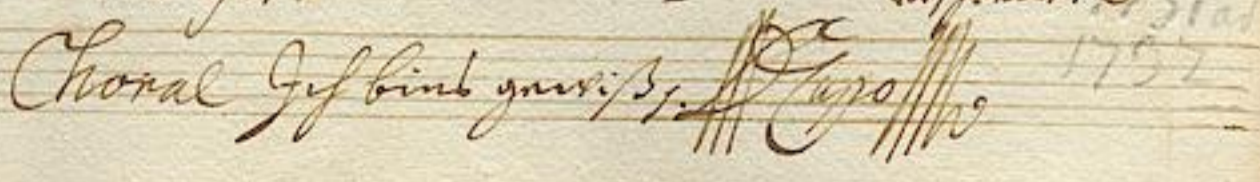 Choral Ich bins gewiß,
Capo
1737